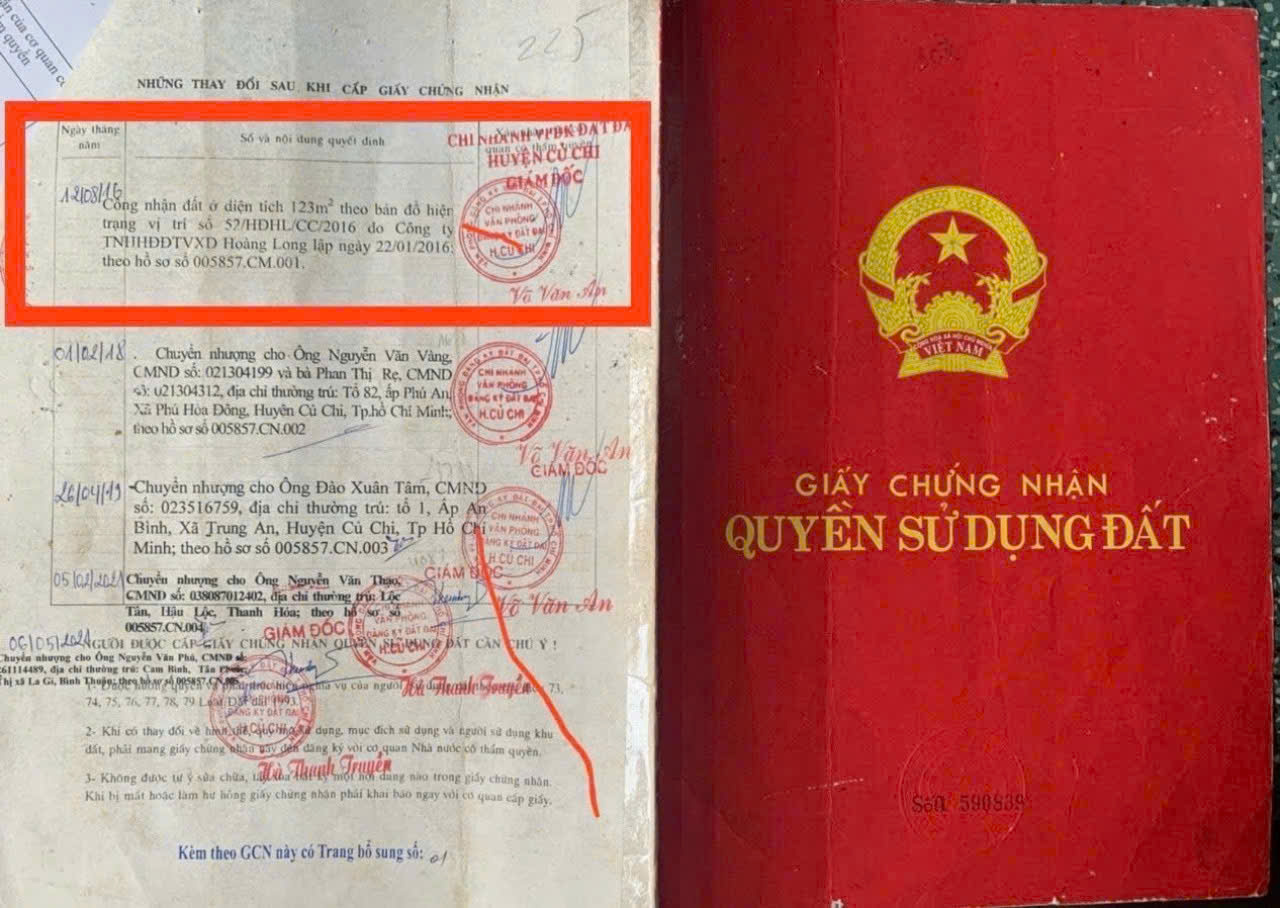 225
NHỮNG THAY ĐỔI SAU KHI CẤP GIẤY CHỨNG NHẬN
Ngày tháng năm
Số và nội dung quyết định
CHI NHÁNH VPĐK ĐẤT ĐA
HUYỆN CỦ CHI
GIÁM ĐỐC
12/08/16
Công nhận đất ở diện tích 123m² theo bản đồ hiện
trạng vị trí số 52/HĐHL/CC/2016 do Công ty
TNHHĐĐTVXD Hoàng Long lập ngày 22/01/2016;
theo hồ sơ số 005857.CM.001.
CHI NHÁNH
VĂN PHÒNG
ĐĂNG KÝ ĐẤT ĐAI
H.CỦ CHI
Võ Văn An
01/02/18
. Chuyển nhượng cho Ông Nguyễn Văn Vàng,
CMND số: 021304199 và bà Phan Thị Rẹ, CMND
số: 021304312, địa chỉ thường trú: Tổ 82, ấp Phú An,
Xã Phú Hòa Đông, Huyện Củ Chi, Tp.hồ Chí Minh;
theo hồ sơ số 005857.CN.002
CHI NHÁNH
VĂN PHÒNG
ĐĂNG KÝ ĐẤT ĐAI
H.CỦ CHI
Võ Văn An
GIÁM ĐỐC
26/04/19
-Chuyển nhượng cho Ông Đào Xuân Tâm, CMND
số: 023516759, địa chỉ thường trú: tổ 1, Ấp An
Bình, Xã Trung An, Huyện Củ Chi, Tp Hồ Chí
Minh; theo hồ sơ số 005857.CN.003
CHI NHÁNH
VĂN PHÒNG
ĐĂNG KÝ ĐẤT ĐAI
H.CỦ CHI
GIÁM ĐỐC
Võ Văn An
05/02/2021
Chuyển nhượng cho Ông Nguyễn Văn Thạo,
CMND số: 038087012402, địa chỉ thường trú: Lộc
Tân, Hậu Lộc, Thanh Hóa; theo hồ sơ số
005857.CN.004
CHI NHÁNH
VĂN PHÒNG
ĐĂNG KÝ ĐẤT ĐAI
H.CỦ CHI
GIÁM ĐỐC
Hà Thanh Truyền
06/05/2021
NGƯỜI ĐƯỢC CẤP GIẤY CHỨNG NHẬN QUYỀN SỬ DỤNG ĐẤT CẦN CHÚ Ý !
Chuyển nhượng cho Ông Nguyễn Văn Phú, CMND số:
261114489, địa chỉ thường trú: Cam Bình, Tân Phước,
Thị xã La Gi, Bình Thuận; theo hồ sơ số 005857.CN.005
1- Được hưởng quyền và phải thực hiện nghĩa vụ của người sử dụng 73,
74, 75, 76, 77, 78, 79 Luật Đất đai 1993.
2- Khi có thay đổi về hình thể, quy mô sử dụng, mục đích sử dụng và người sử dụng khu
đất, phải mang giấy chứng nhận này đến đăng ký với cơ quan Nhà nước có thẩm quyền.
ĐĂNG KÝ ĐẤT ĐAI
H.CỦ CHI
Hà Thanh Truyền
3- Không được tự ý sửa chữa, tẩy xóa bất kỳ một nội dung nào trong giấy chứng nhận.
Khi bị mất hoặc làm hư hỏng giấy chứng nhận phải khai báo ngay với cơ quan cấp giấy.
Kèm theo GCN này có Trang bổ sung số: 01
CỘNG HÒA XÃ HỘI CHỦ NGHĨA
VIỆT NAM
GIẤY CHỨNG NHẬN
QUYỀN SỬ DỤNG ĐẤT
590839